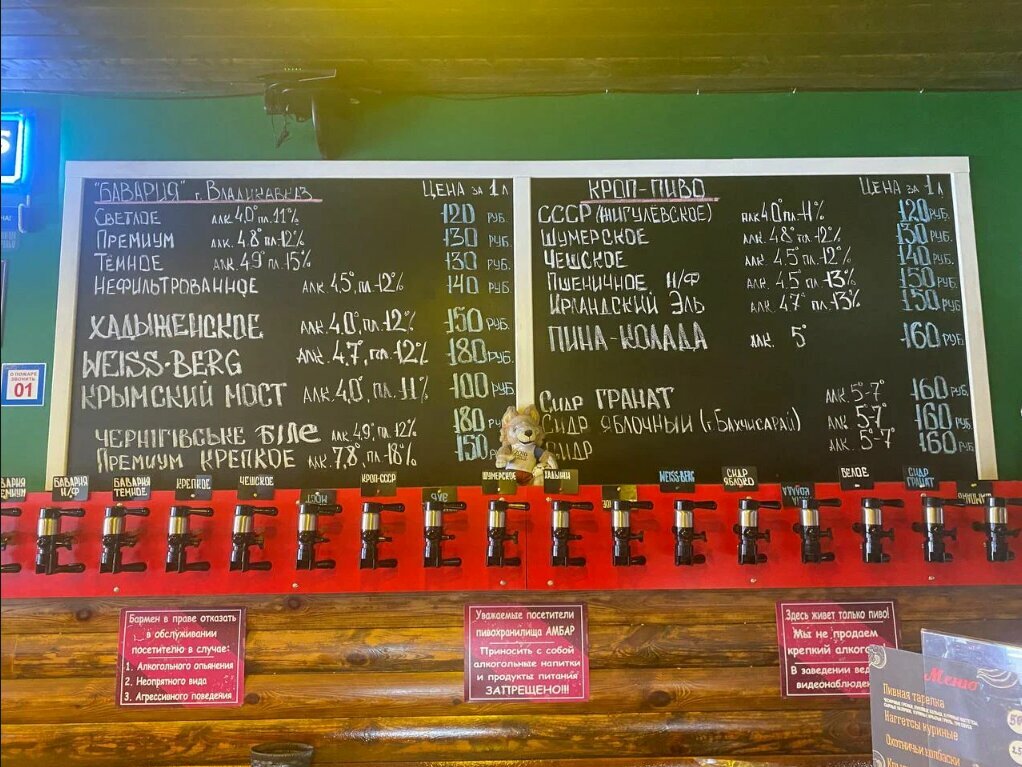 "БАВАРИЯ" г. ВЛАДИКАВКАЗ ЦЕНА за 1 л
СВЕТЛОЕ АЛК. 4,0° ПЛ. 11% 120 РУБ.
ПРЕМИУМ АЛК. 4.8° ПЛ-12% 130 РУБ.
ТЁМНОЕ АЛК. 4.9° ПЛ-15% 130 РУБ.
НЕФИЛЬТРОВАННОЕ АЛК. 4.5°, ПЛ.-12% 140 РУБ.
ХАДЫЖЕНСКОЕ АЛК. 4.0°, ПЛ.-12% 150 РУБ.
WEISS-BERG АЛК. 4,7°, ПЛ.-12% 180 РУБ.
КРЫМСКИЙ МОСТ АЛК. 4.0°, ПЛ.-11% 100 РУБ.
ЧЕРНIГIВСЬКЕ БIЛЕ АЛК. 4.9°, ПЛ. 12% 180
ПРЕМИУМ КРЕПКОЕ АЛК. 7,8°, ПЛ-18% 150
КРОП-ПИВО ЦЕНА за 1 л
СССР (ЖИГУЛЁВСКОЕ) АЛК 4.0° ПЛ-11% 120 РУБ.
ШУМЕРСКОЕ АЛК. 4.8° ПЛ.-12% 130 РУБ.
ЧЕШСКОЕ АЛК. 4.5° ПЛ.-12% 140 РУБ.
ПШЕНИЧНОЕ Н/Ф АЛК. 4.5° ПЛ-13% 150 РУБ.
ИРЛАНДСКИЙ ЭЛЬ АЛК. 4.7° ПЛ.13% 150 РУБ.
ПИНА-КОЛАДА АЛК. 5° 160 РУБ
СИДР ГРАНАТ АЛК. 5°-7° 160 РУБ.
СИДР ЯБЛОЧНЫЙ (г. БАХЧИСАРАЙ) АЛК. 5-7° 160 РУБ
СИДР АЛК. 5°-7° 160 РУБ
О ПОЖАРЕ
ЗВОНИТЬ
01
БАВАРИЯ
ПРЕМИУМ
БАВАРИЯ
Н/Ф
БАВАРИЯ
ТЁМНОЕ
КРЕПКОЕ
ЧЕШСКОЕ
МОСТ
КРОП-СССР
ЭЛЬ
ШУМЕРСКОЕ
WEISS-BERG
СИДР
ЯБЛОКО
БЕЛОЕ
СИДР
ГРАНАТ
Бармен в праве отказать
в обслуживании
посетителю в случае:
1. Алкогольного опьянения
2. Неопрятного вида
3. Агрессивного поведения
Уважаемые посетители
пивохранилища АМБАР
Приносить с собой
алкогольные напитки
и продукты питания
ЗАПРЕЩЕНО!!!
Здесь живет только пиво!
Мы не продаем
крепкий
В заведении
Меню
Пивная тарелка
Наггетсы куриные
Охотничьи колбаски